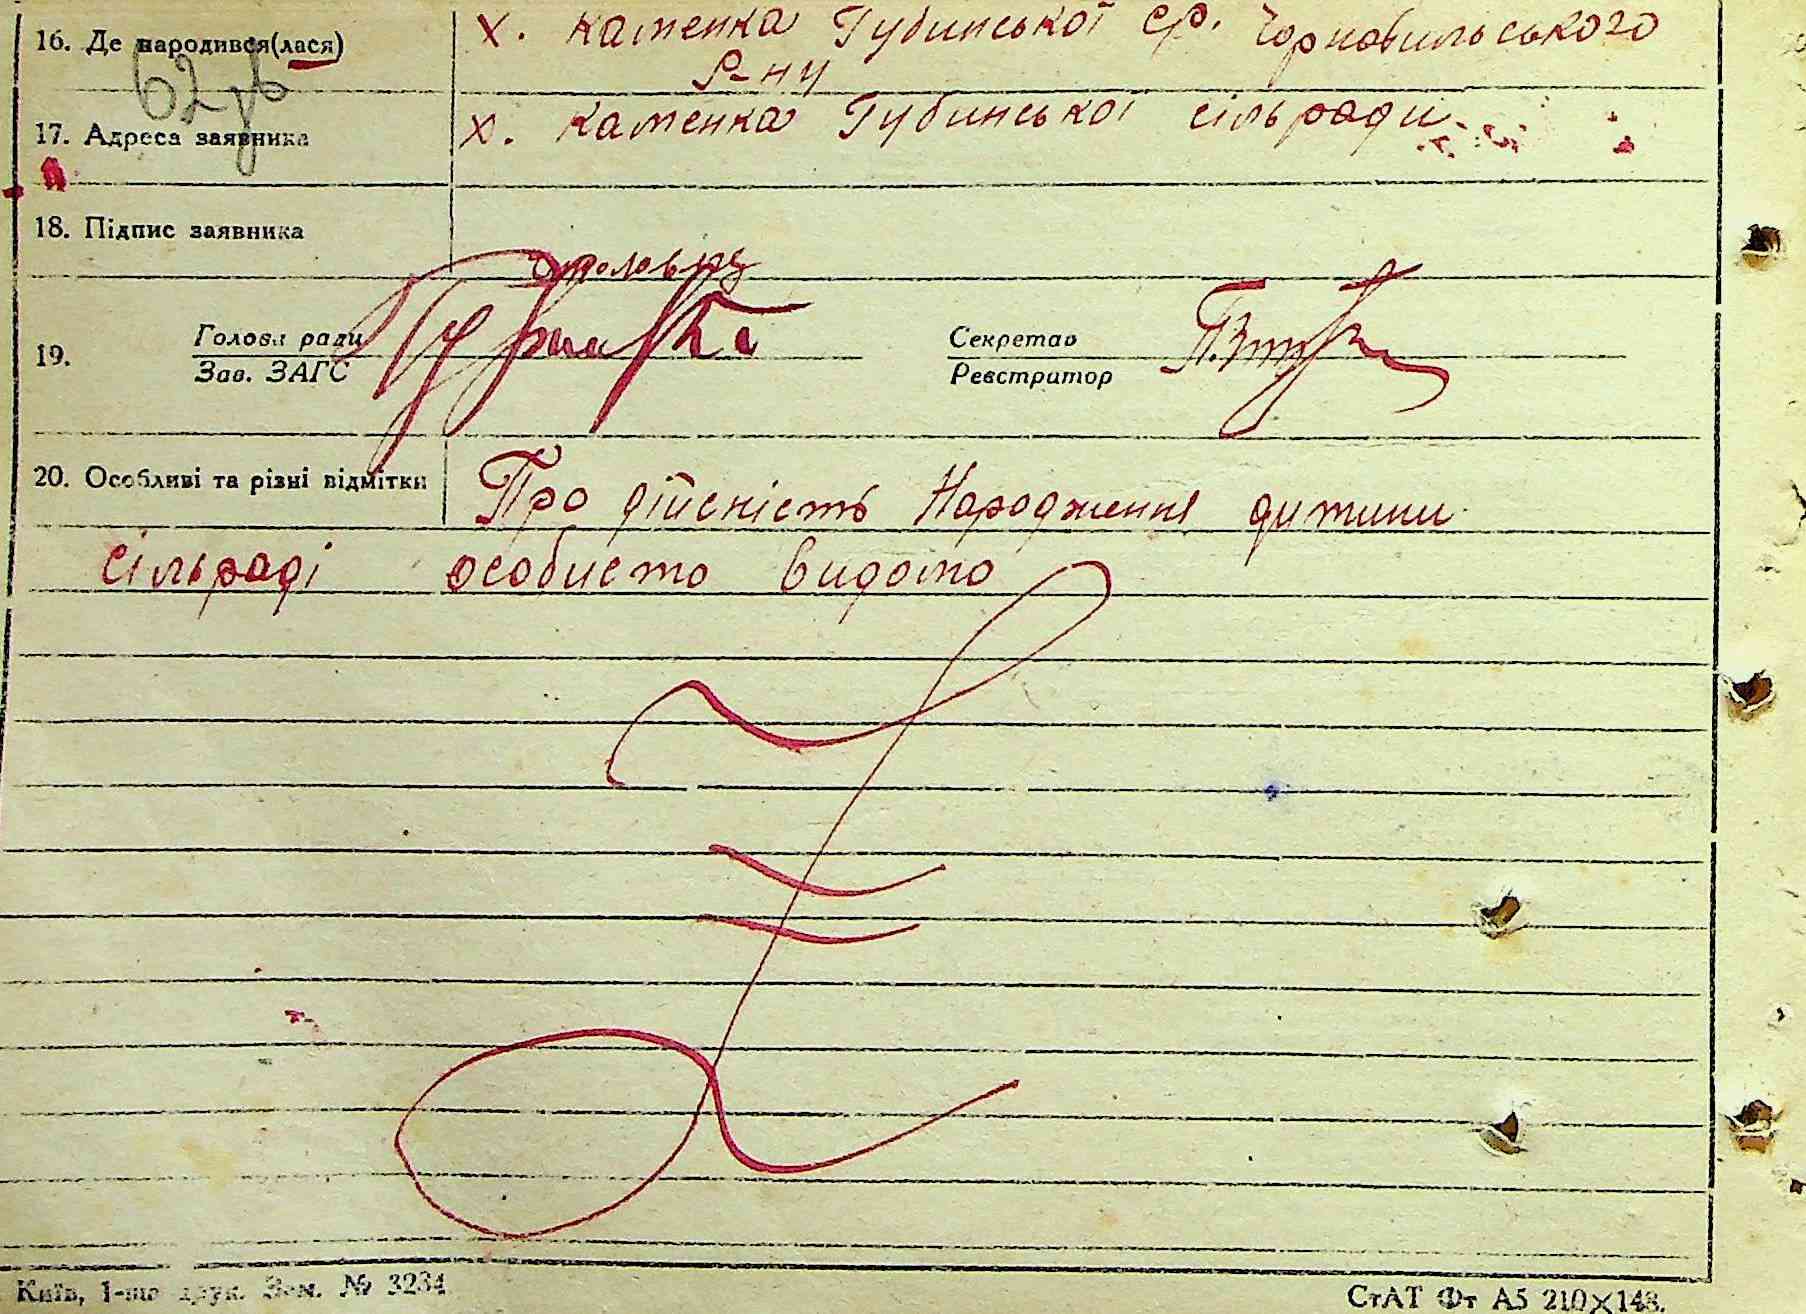 16. Де народився(лася) х. Каменка Губинської с/р. Чорнобильського
р-ну
17. Адреса заявника х. Каменка Губинської сільради
18. Підпис заявника
19. Голова ради Секретар
Зав. ЗАГС Реєстратор
20. Особливі та різні відмітки Про дійсність Народження дитини
сільраді особисто видомо
Київ, 1-ша друк. Зам. № 3234 СтАТ Фт А5 210×148.